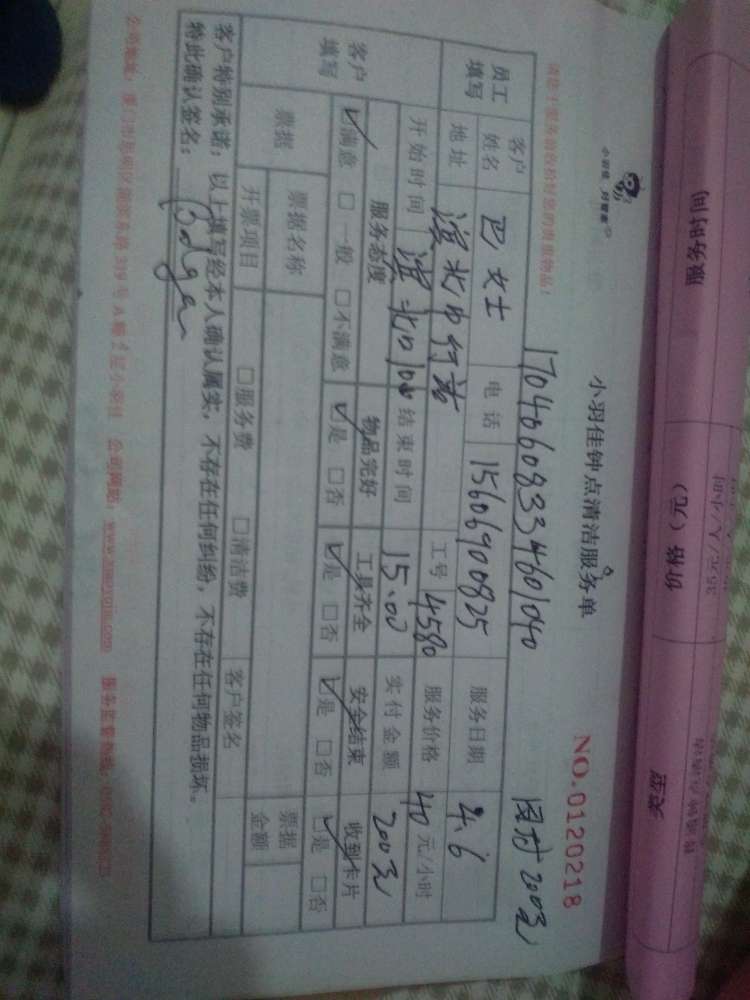 服务时间
价格（元）
35元/人/小时
小羽佳 好管家
小羽佳钟点清洁服务单
NO.0120218
1704060833460104O
200元
员工填写
客户姓名 巴女士 电话 15606900825 服务日期 4.6
地址 滨北中行站 工号 4580 服务价格 40元/小时
开始时间 滨北 10:00 结束时间 15.00 实付金额 200元
客户填写
服务态度 物品完好 工具齐全 安全结束 收到卡片
☑满意 □一般 □不满意 ☑是 □否 ☑是 □否 ☑是 □否 ☑是 □否
票据 票据名称 票据金额
开票项目 □服务费 □清洁费 客户签名
客户特别承诺：以上填写经本人确认属实，不存在任何纠纷，不存在任何物品损坏。
特此确认签名：
公司网址：www.xiaoyujia.com